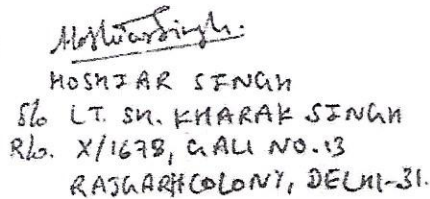 Hoshiar Singh.
HOSHIAR SINGH
S/o LT. SH. KHARAK SINGH
R/o. X/1678, GALI NO.13
RAJGARH COLONY, DELHI-31.